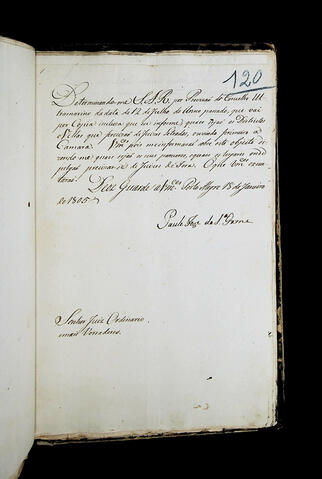 120
Determinando-me S.A.R. por Provizaõ do Conselho Ul
tramarino da data de 12 de Julho do Anno passado, que vai
por Copia incluza que eu informe quaes sejaõ os Destrictos
e Villas que precizaõ de Juizes Letrados, ouvindo primeiro a
Camara. Vm.ces pois me informaráõ sobre este objecto di
zendo me quaes sejaõ os seus pareceres, e quaes os lugares onde
julgaõ precizar-se de Juizes de fora. O que Vm.ces exe
cutaráõ.
Deos Guarde a Vm.ces Porto Alegre 15 de Janeiro
de 1805
Paulo Joze da S.a Gama
Senhor Juiz Ordinario,
e mais Vereadores.